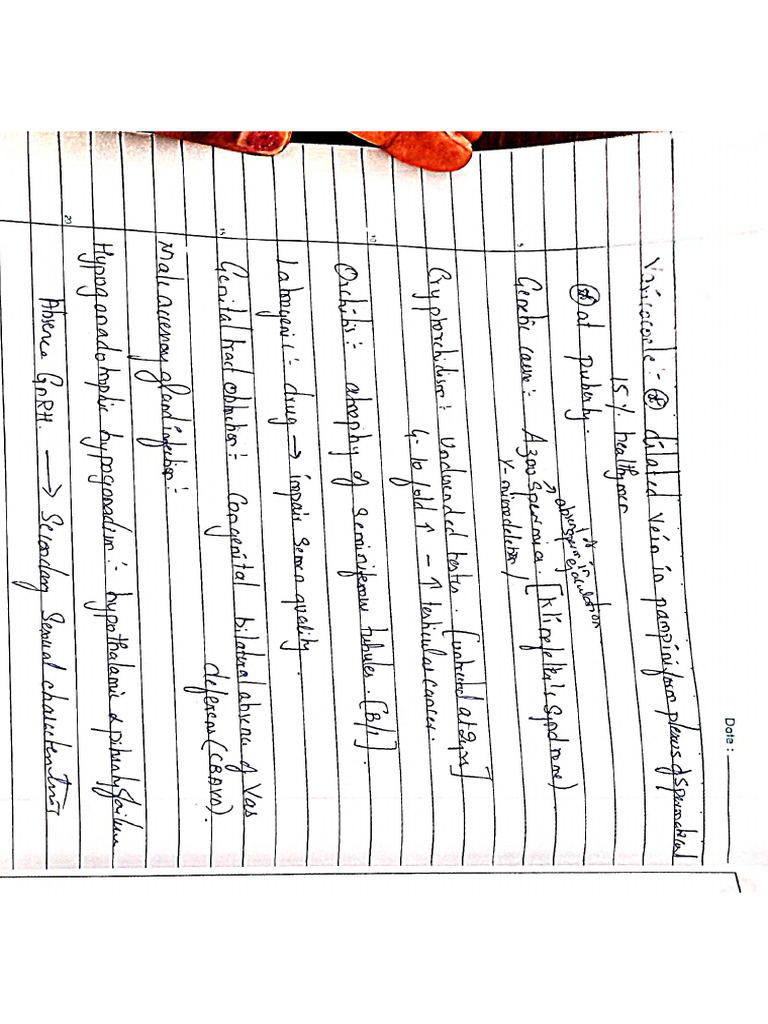 Date :
Varicocele :- ⊛ dilated vein in pampiniform plexus of spermatical
15% healthy men
⊛ at puberty.
→ absent sperm in ejaculation
5
Genetic causes :- Azoospermia. [Klinefelter's Syndrome)
Y-microdeletion /
Cryptorchidism :- Undescended testes. [ at 2yrs]
4-10 fold ↑ - ↑ testicular cancer.
10
Orchitis :- atrophy of seminiferous tubules. [B/L].
Iatrogenic :- drug → impair semen quality.
15
Genital tract obstruction :- Congenital bilateral absence of Vas
deferens (CBAVD).
Male accessory gland infection :-
Hypogonadotrophic hypogonadism :- hypothalamic & pituitary failure
20
Absence GnRH. → Secondary Sexual characteristics